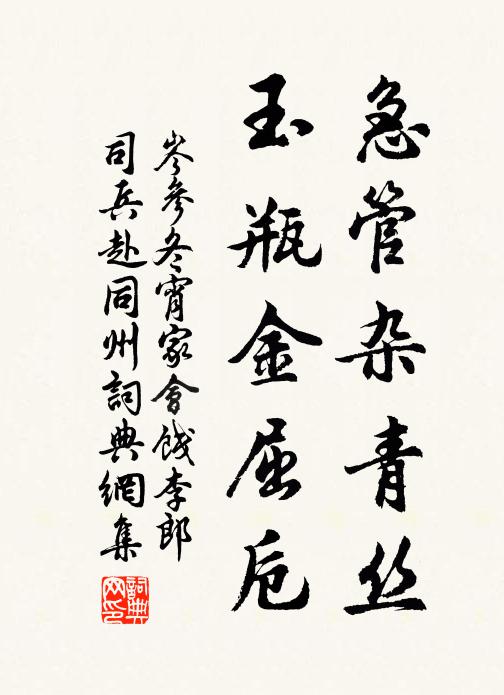 急管杂青丝
玉瓶金屈卮
岑参冬宵家會饯李郎
司兵赴同州詞典網集
詞典网印